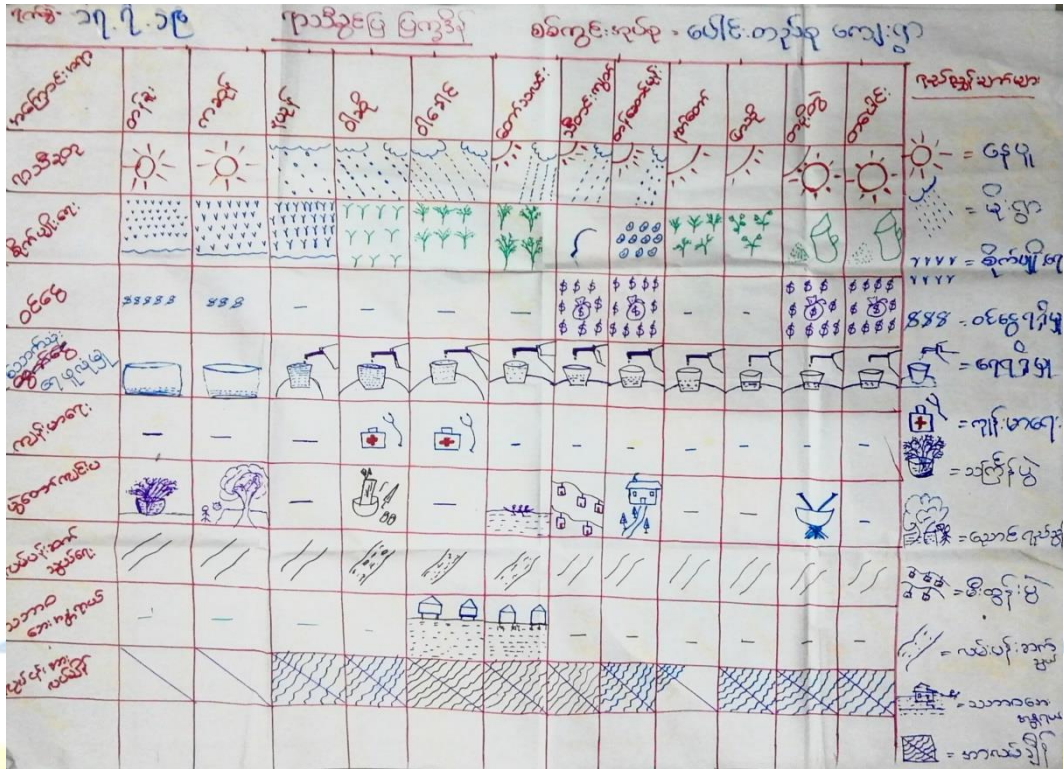 ရက်စွဲ - ၁၇.၇.၁၉
ရာသီခွင်ပြ ပြက္ခဒိန်
စစ်ကွင်းအုပ်စု - ပေါင်းတည်စု ကျေးရွာ
အကြောင်းအရာ
တန်ခူး
ကဆုန်
နယုန်
ဝါဆို
ဝါခေါင်
တော်သလင်း
သီတင်းကျွတ်
တန်ဆောင်မုန်း
နတ်တော်
ပြာသို
တပို့တွဲ
တပေါင်း
ရာသီဥတု
စိုက်ပျိုးရေး
ဝင်ငွေ
ကျန်းမာရေး
လမ်းပန်းဆက်သွယ်ရေး
သဘာဝဘေးအန္တရာယ်
= နေပူ
= မိုးရွာ
= စိုက်ပျိုးရေး
= ဝင်ငွေရရှိမှု
= ရေရရှိမှု
= ကျန်းမာရေး
= သင်္ကြန်ပွဲ
= ညောင်ရေသွန်းပွဲ
= မီးထွန်းပွဲ
= လမ်းပန်းဆက်သွယ်မှု
= သဘာဝဘေးအန္တရာယ်
= အားလပ်ချိန်